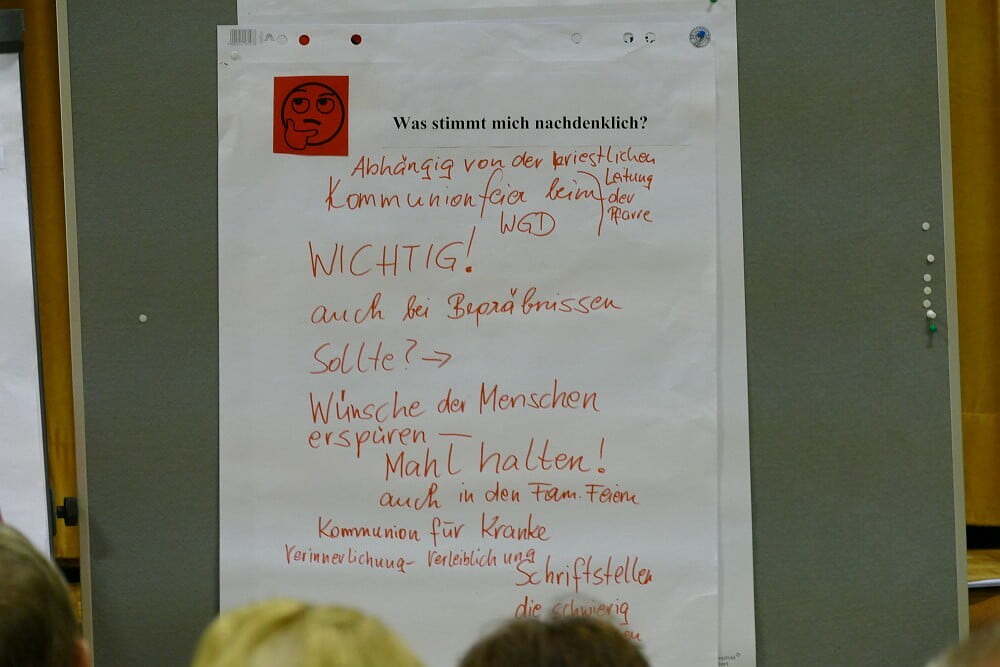 Was stimmt mich nachdenklich?
Abhängig von der priestlichen
Leitung
der
Pfarre
Kommunionfeier beim
WGD
WICHTIG!
auch bei Begräbnissen
Sollte? →
Wünsche der Menschen
erspüren —
Mahl halten!
auch in den Fam. Feiern
Kommunion für Kranke
Verinnerlichung - Verleiblichung
Schriftstellen
die schwierig